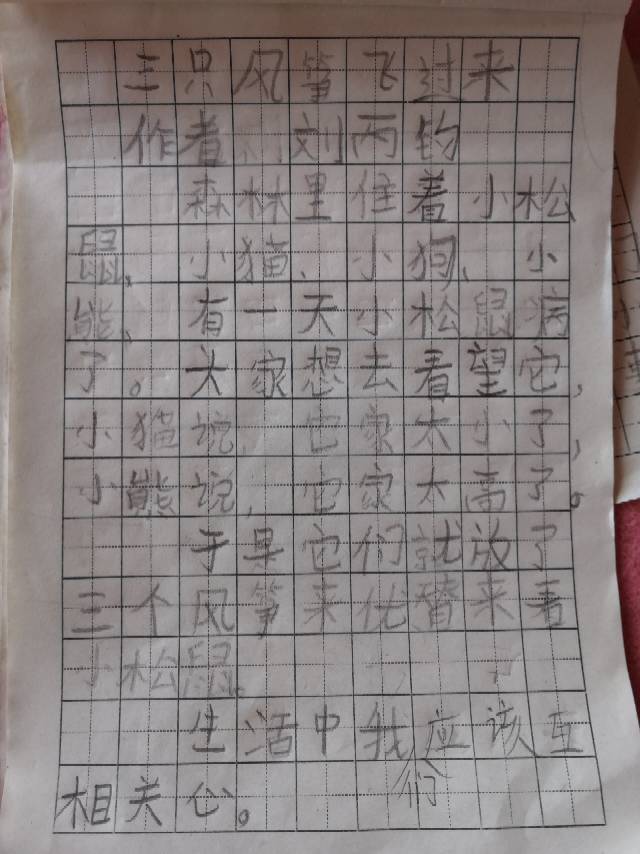 三只风筝飞过来
作者 刘丙钧
森林里住着小松
鼠、小猫、小狗、小
熊、有一天小松鼠病
了。大家想去看望它，
小猫说，它家太小了，
小熊说，它家太高了。
于是它们就放了
三个风筝来代替来看
小松鼠。
生活中我们应该互
相关心。